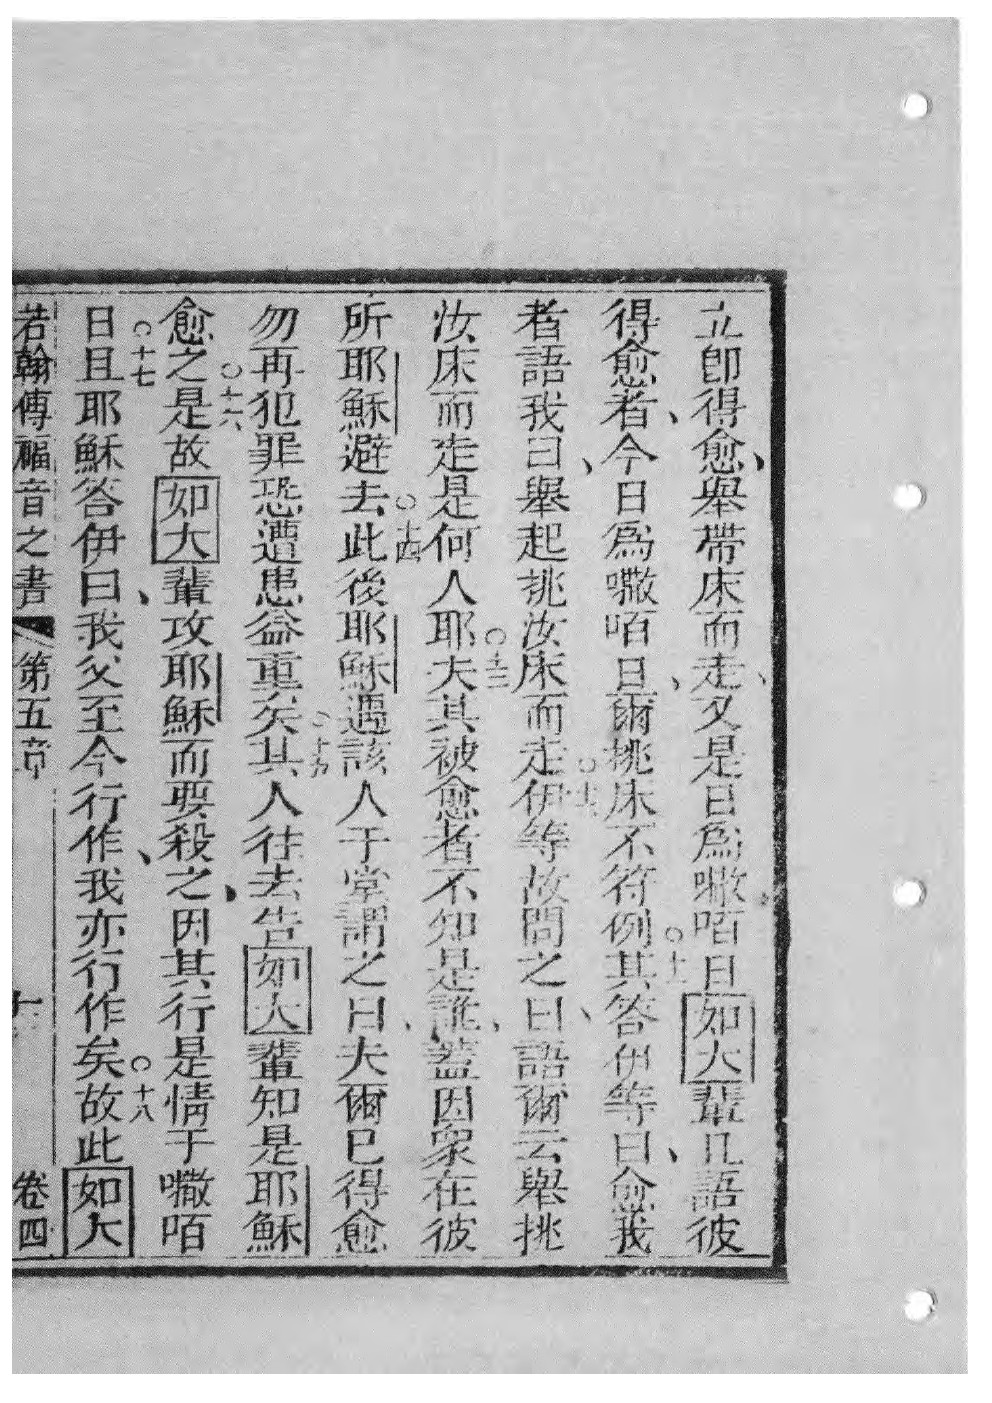 立即得愈、舉帶床而走、又是日為㘔咟日如大輩且語彼
得愈者、今日為㘔咟日、爾挑床不符例○十一其答伊等曰、愈我
者語我曰、舉起挑汝床而走○十二伊等故問之曰、語爾云舉挑
汝床而走是何人耶○十三夫其被愈者不知是誰、蓋因眾在彼
所耶穌避去○十四此後耶穌遇該人于堂謂之曰、夫爾已得愈
勿再犯罪恐遭患益重矣○十五其人往去告如大輩知是耶穌
愈之○十六是故如大輩攻耶穌而要殺之、因其行是情于㘔咟
日○十七且耶穌答伊曰、我父至今行作、我亦行作矣○十八故此如大
若翰傳福音之書 第五章 十 卷四